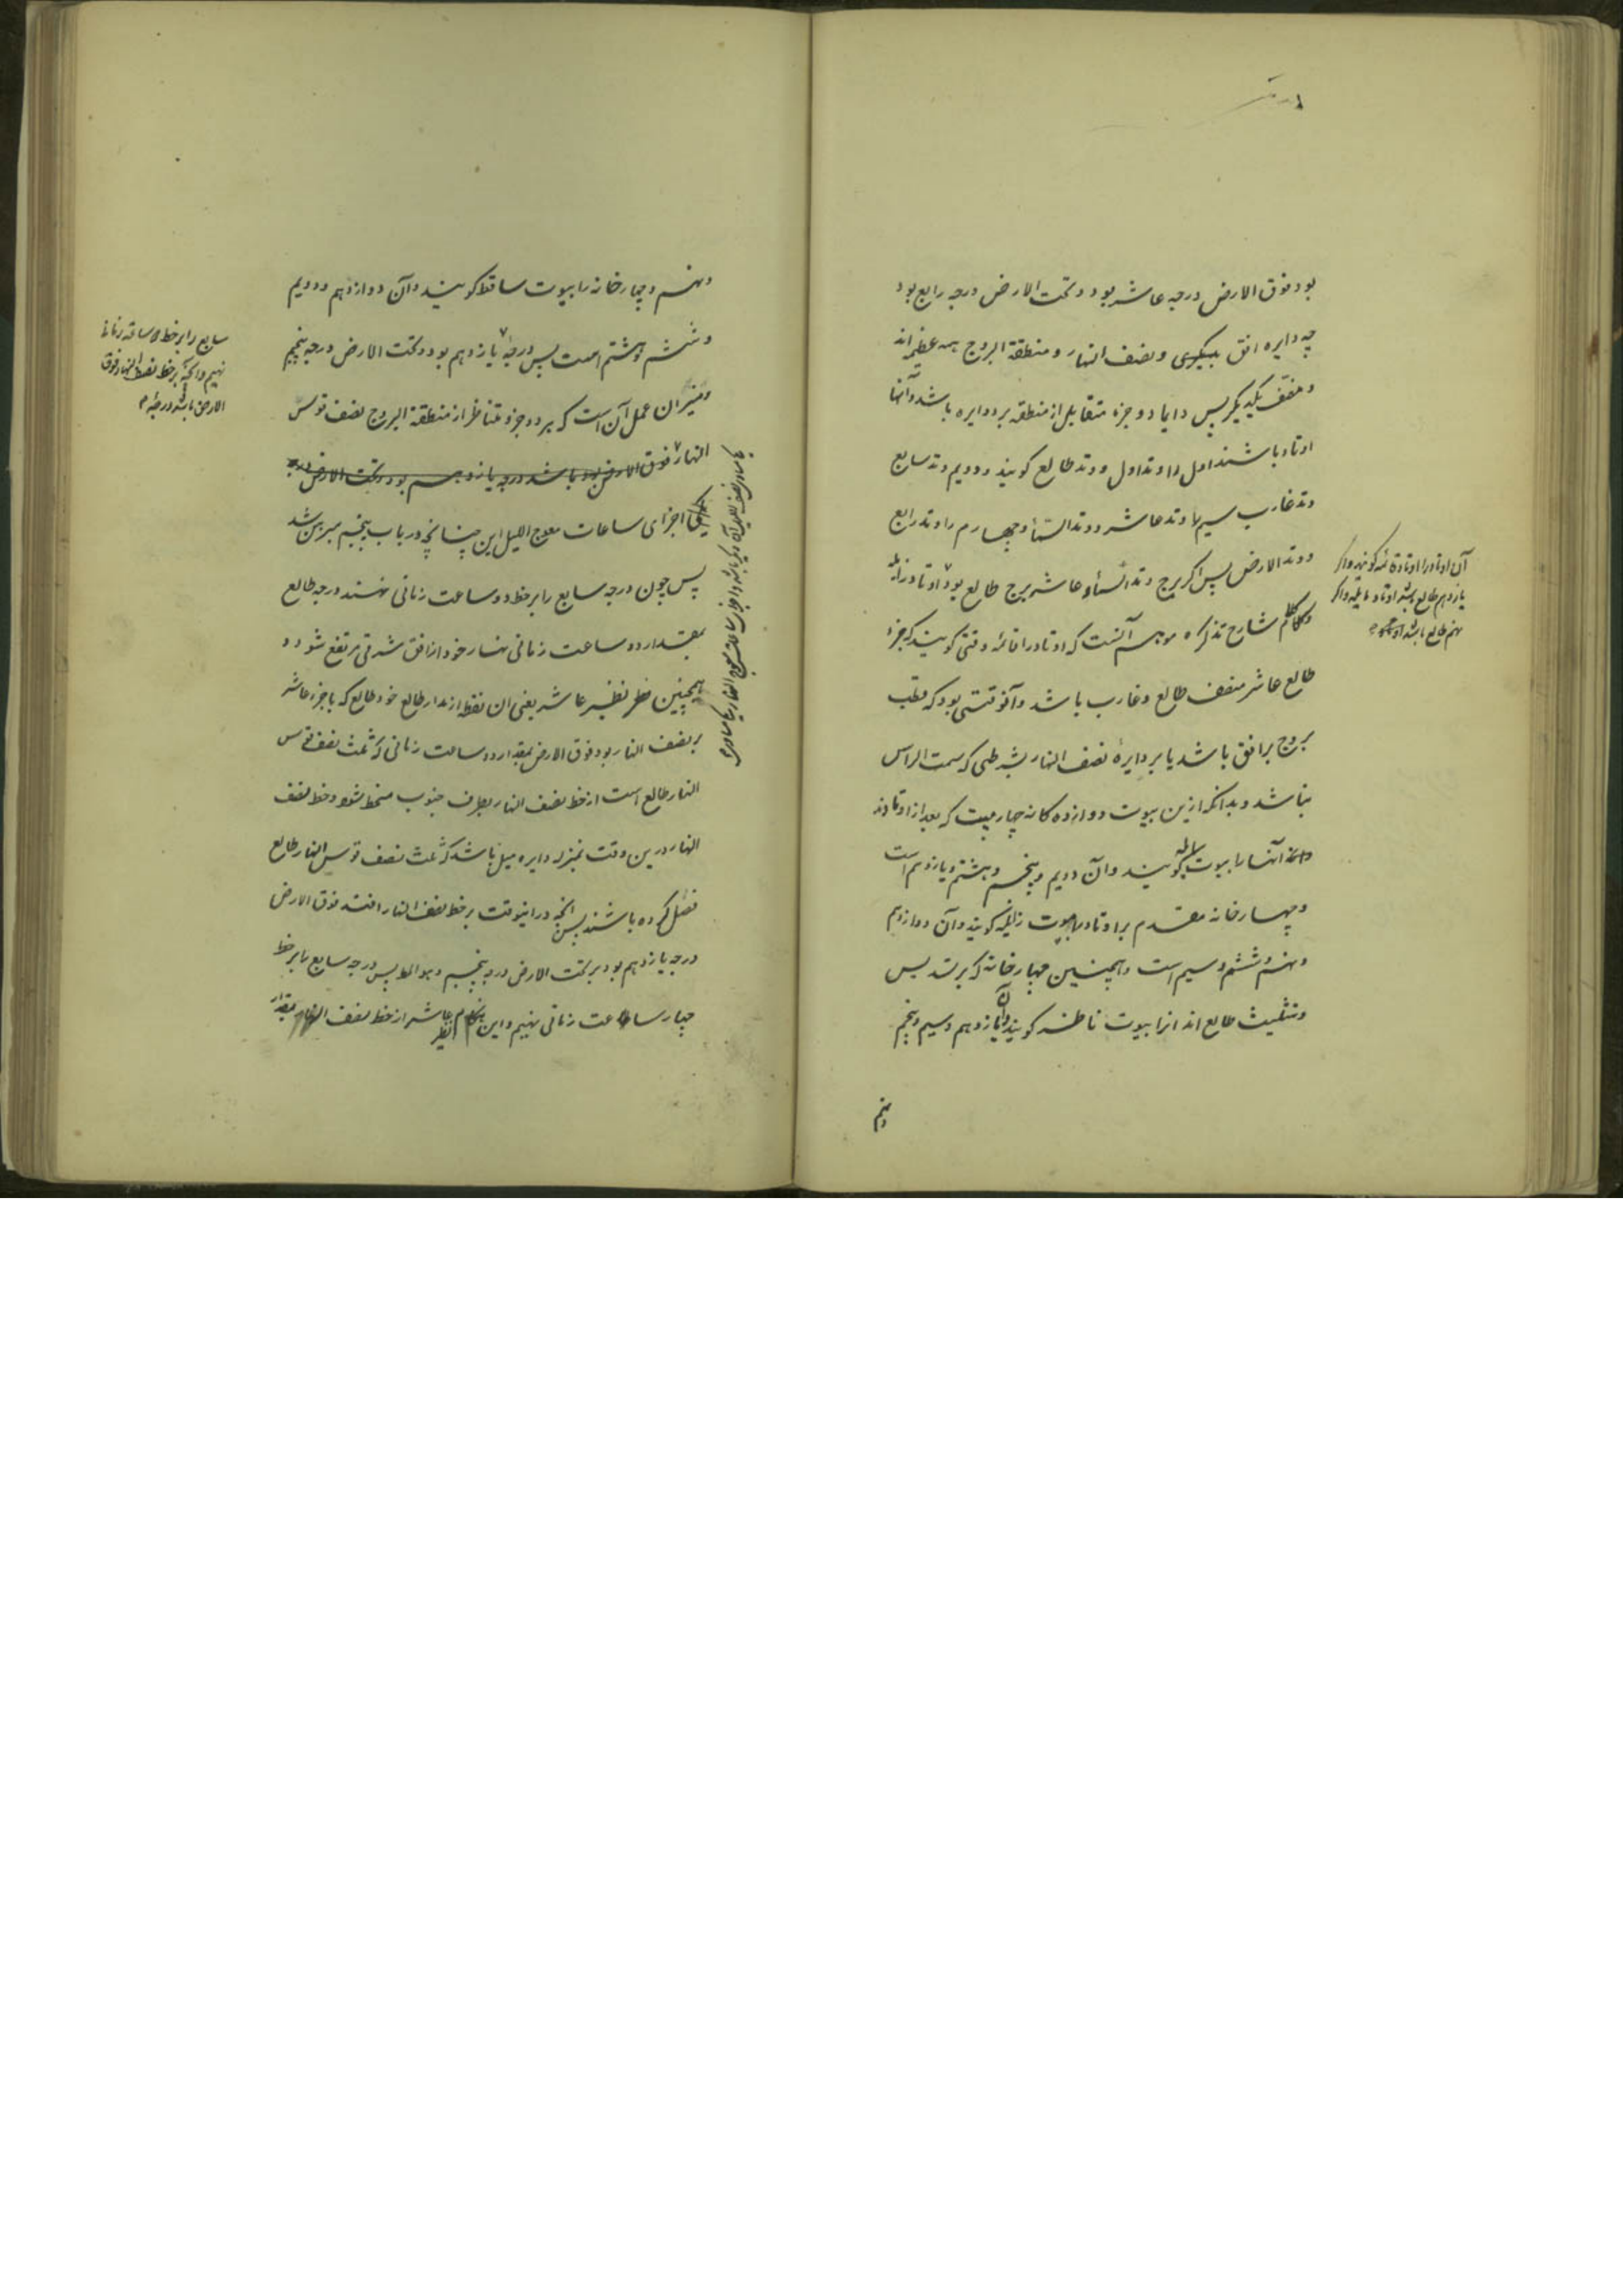 بود فوق الارض درجه عاشر بود و تحت الارض درجه رابع بود
چه دایره افق و نصف النهار و منطقة البروج همه عظیمه اند
و منصف یکدیگر پس دایما دو جزء متقابل از منطقه بر دو دایره باشد و آنها
اوتاد باشند اول را وتد اول و وتد طالع گویند و دویم وتد سابع
وتد غارب سیم را وتد عاشر و وتد السماء و چهارم را وتد رابع
و وتد الارض پس اگر برج وتد السماء عاشر برج طالع بود اوتاد را
شارح تذکره موهم آنست که اوتاد را قائمه وقتی گویند که جزء
طالع عاشر منصف طالع و غارب باشد و آنوقتی بود که قطب
بروج بر افق باشد یا بر دایرهٔ نصف النهار بشرطی که سمت الراس
نباشد و بدانکه ازین بیوت دوازده کانه چهار بیت که بعد از اوتادند
آنها را بیوت مائله گویند و آن دویم و پنجم و هشتم و یازدهم است
و چهار خانه مقدم بر اوتاد را بیوت زایله گویند و آن دوازدهم
و نهم و ششم و سیم است و همچنین چهار خانه که بر تسدیس
و تثلیث طالع اند انرا بیوت ناظره گویند و آن یازدهم و سیم و پنجم
و نهم
آن اوتاد را اوتاد قائمه گویند و اگر
یازدهم طالع باشد اوتاد مائله و اگر
نهم طالع باشد
و نهم و چهار خانه را بیوت ساقط گویند و آن دوازدهم و دویم
و ششم و هشتم است پس درجهٔ یازدهم بود و تحت الارض درجه پنجم
و میزان عمل آن است که هر دو جزء متناظر از منطقة البروج نصف قوس
النهار فوق الارض باشد درجه یازدهم بود و تحت الارض درجه
اجزای ساعات معوج اللیل این چنانچه در باب پنجم مبرهن شد
پس چون درجه سابع را بر خط دو ساعت زمانی نهند درجه طالع
بمقدار دو ساعت زمانی نهار خود از افق شرقی مرتفع شود و
همچنین نظیر عاشر یعنی ان نقطه از مدار طالع خود طالع که با جزء عاشر
بر نصف النهار بود فوق الارض بمقدار دو ساعت زمانی که ثلث نصف قوس
النهار طالع است از خط نصف النهار بطرف جنوب منحط شود و خط نصف
النهار درین وقت بمنزله دایره میل باشد که ثلث نصف قوس النهار طالع
فصل کرده باشند پس انچه در اینوقت بر خط نصف النهار افتد فوق الارض
درجه یازدهم بود و بر تحت الارض درجه پنجم و هو المط پس درجه سابع را بر خط
چهار ساعت زمانی نهیم و این هنگام نظیر عاشر از خط نصف النهار بمقدار
سابع را بر خط ساعت زمانی
نهیم و انچه بر خط نصف النهار فوق
الارض باشد درجه